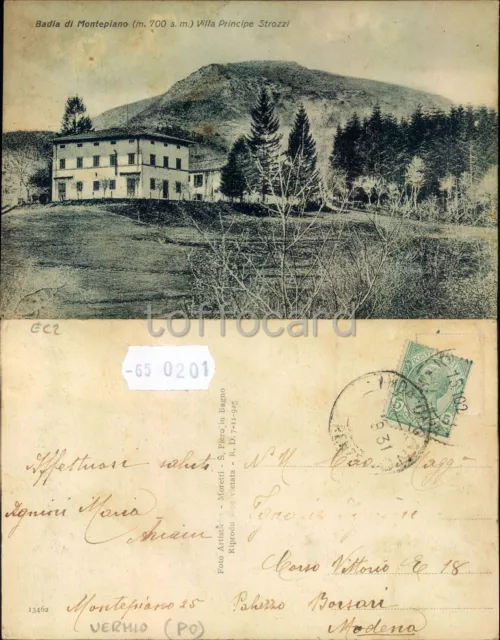 Badia di Montepiano (m. 700 s. m.) Villa Principe Strozzi
toffocard
EC2
-65 0201
Foto Artistica - Moretti - S. Piero in Bagno
Riproduzione vietata - R. D. 7-11-925
Affettuosi saluti
Agnini Maria
N. H.
Corso Vittorio E 18
Palazzo Borsari
Modena
Montepiano 25
13462
VERNIO (PO)